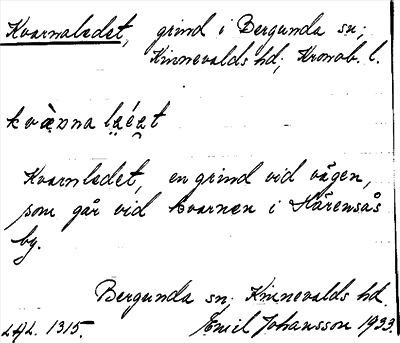 Kvarnaledet, grind i Bergunda sn;
Kinnevalds hd; Kronob. l.
Kvarnledet, en grind vid vägen,
som går vid kvarnen i Häremsås
by.
Bergunda sn; Kinnevalds hd.
LAL. 1315. Emil Johansson 1933.